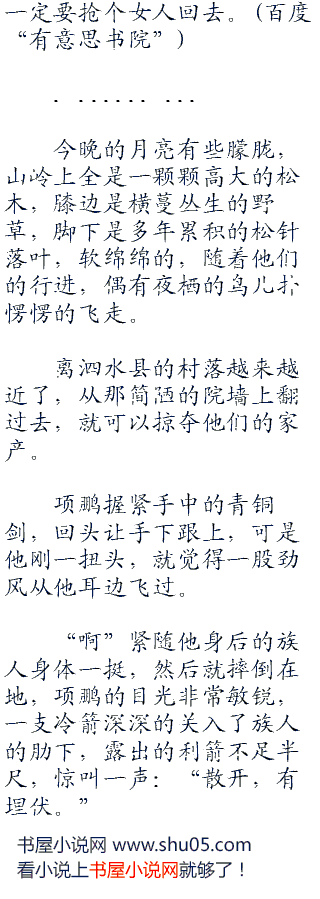 一定要抢个女人回去。(百度
“有意思书院”)
. ...... ...
今晚的月亮有些朦胧，
山岭上全是一颗颗高大的松
木，膝边是横蔓丛生的野
草，脚下是多年累积的松针
落叶，软绵绵的，随着他们
的行进，偶有夜栖的鸟儿扑
愣愣的飞走。
离泗水县的村落越来越
近了，从那简陋的院墙上翻
过去，就可以掠夺他们的家
产。
项鹏握紧手中的青铜
剑，回头让手下跟上，可是
他刚一扭头，就觉得一股劲
风从他耳边飞过。
“啊”紧随他身后的族
人身体一挺，然后就摔倒在
地，项鹏的目光非常敏锐，
一支冷箭深深的关入了族人
的肋下，露出的利箭不足半
尺，惊叫一声：“散开，有
埋伏。”
书屋小说网 www.shu05.com
看小说上书屋小说网就够了！